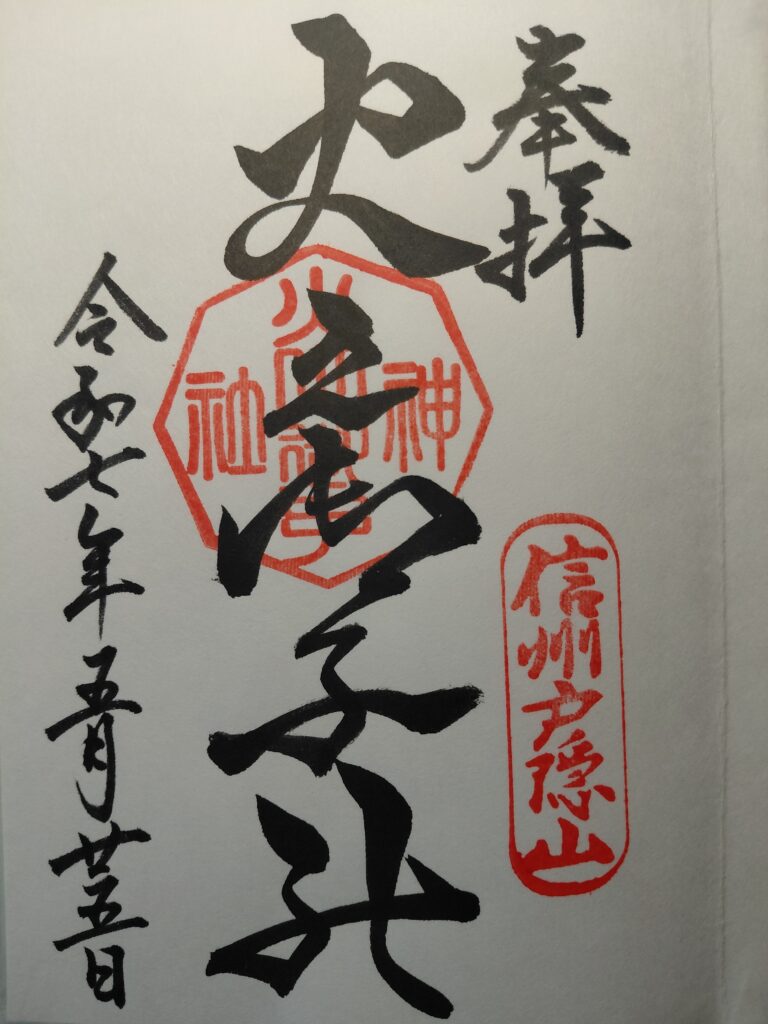 奉拝
信州戸隠山
火之御子社
神社
令和七年五月廿五日